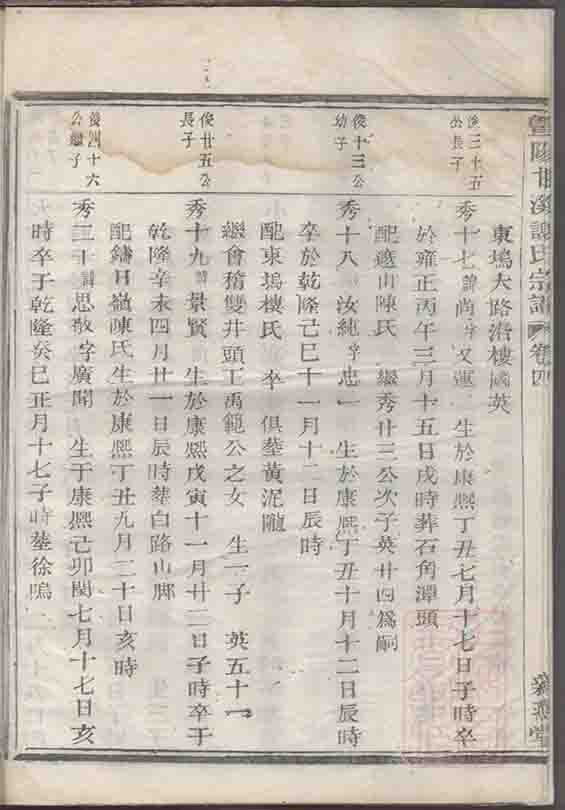 暨陽甘溪謝氏宗譜 卷四
東塢大路沿樓國英
俊三十五公長子
秀十七諱尚字文運 生於康熙丁丑七月十七日子時卒
於雍正丙午三月十五日戌時葬石角潭頭
配遶山陳氏 繼秀廿三公次子英廿四為嗣
俊十三公幼子
秀十八 汝純字忠一 生於康熙丁丑十月十二日辰時
卒於乾隆己巳十一月十二日辰時
配東塢樓氏 卒 俱塟黃泥隴
繼會稽雙井頭王禹範公之女 生一子 英五十一
俊廿五公長子
秀十九諱景賢 生於康熙戊寅十一月廿二日子時卒于
乾隆辛未四月廿一日辰時塟白路山脚
配鑄日嶺陳氏生於康熙丁丑九月二十日亥時
俊四十六公繼子
秀二十諱思敬字廣聞 生于康熙己卯閏七月十七日亥
時卒于乾隆癸巳正月十七子時塟徐塢